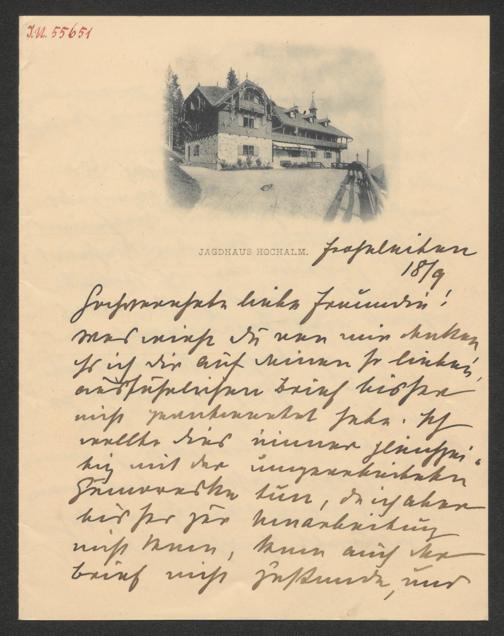 I.N. 55651
JAGDHAUS HOCHALM.
Frohnleiten
18/9
Hochverehrte liebe Freundin!
Was wirst du von mir denken,
ds ich dir auf deinen so lieben,
ausführlichen Brief bisher
nicht geantwortet habe. Ich
wollte dies immer gleichzei-
tig mit der umgearbeiteten
Humoreske tun, da ich aber
bisher zur Umarbeitung
nicht kam, kam auch der
Brief nicht zustande, und